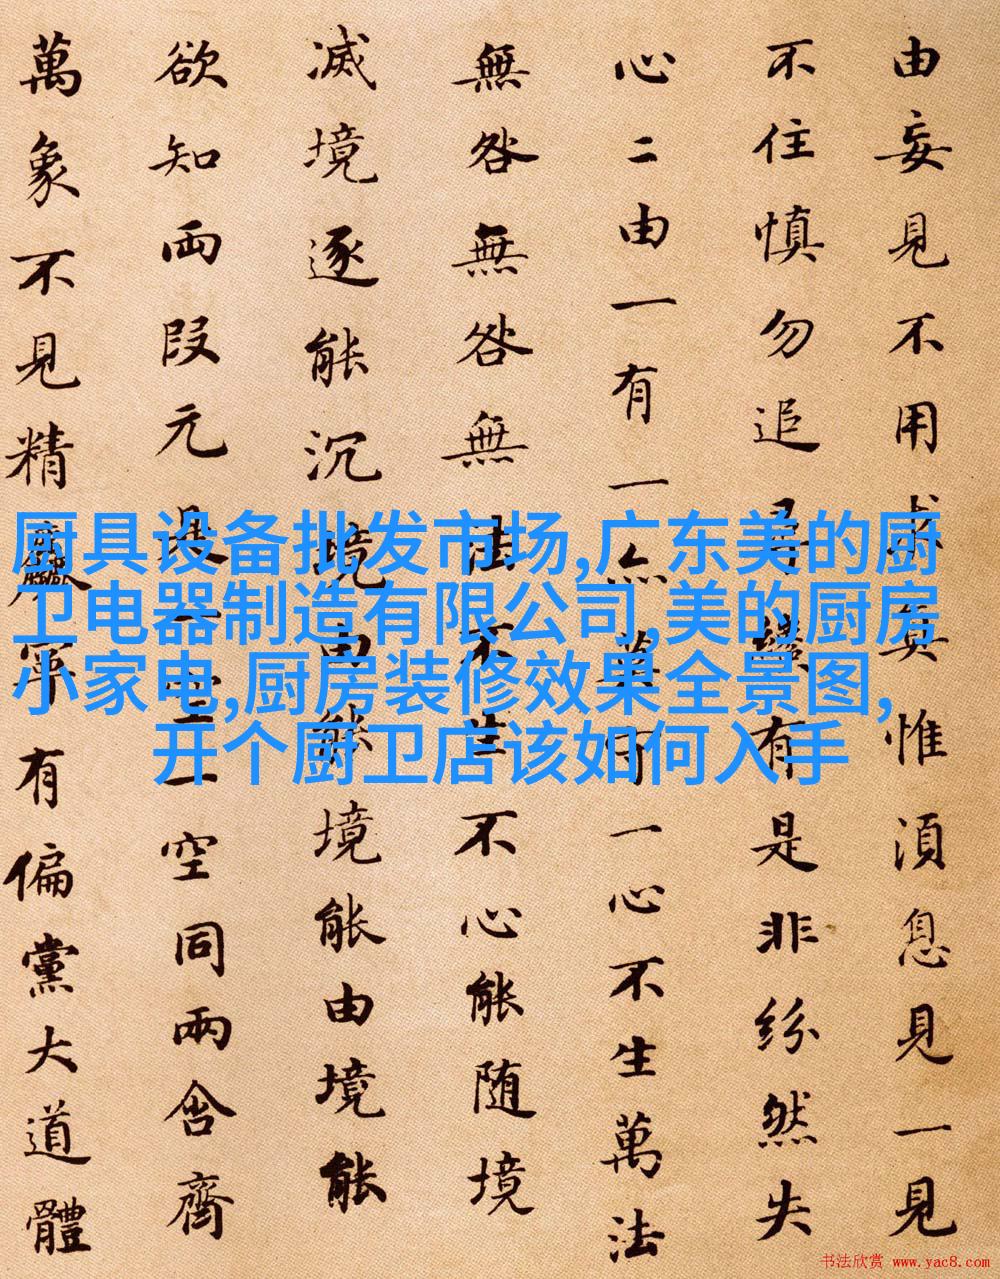 由妄見不用求真惟湏息見一見
不住慎勿追尋纔有是非紛然失
心二由一有一亦莫守一心不生萬法
無咎無咎無法不生不心能随境
滅境逐能沉境由能境能由境能
欲知両段元是一空一空同兩含齊
萬象不見精麤寧有偏黨大道體
厨具设备批发市场,广东美的厨
卫电器制造有限公司,美的厨房
小家电,厨房装修效果全景图,
开个厨卫店该如何入手
书法欣赏 www.yac8.com